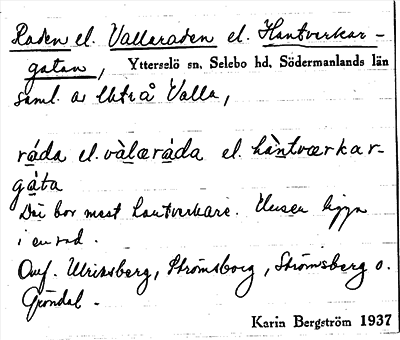 Raden el. Vallaraden el. Hantverkar-
gatan, Ytterselö sn, Selebo hd, Södermanlands län
saml. av lht på Valla,
råda el. vàlæråda el. hàntværkar-
gåta
Där bor mest hantverkare. Husen ligga
i en rad.
Omf. Ulriksberg, Strömsborg, Strömsberg o.
Gröndal.
Karin Bergström 1937